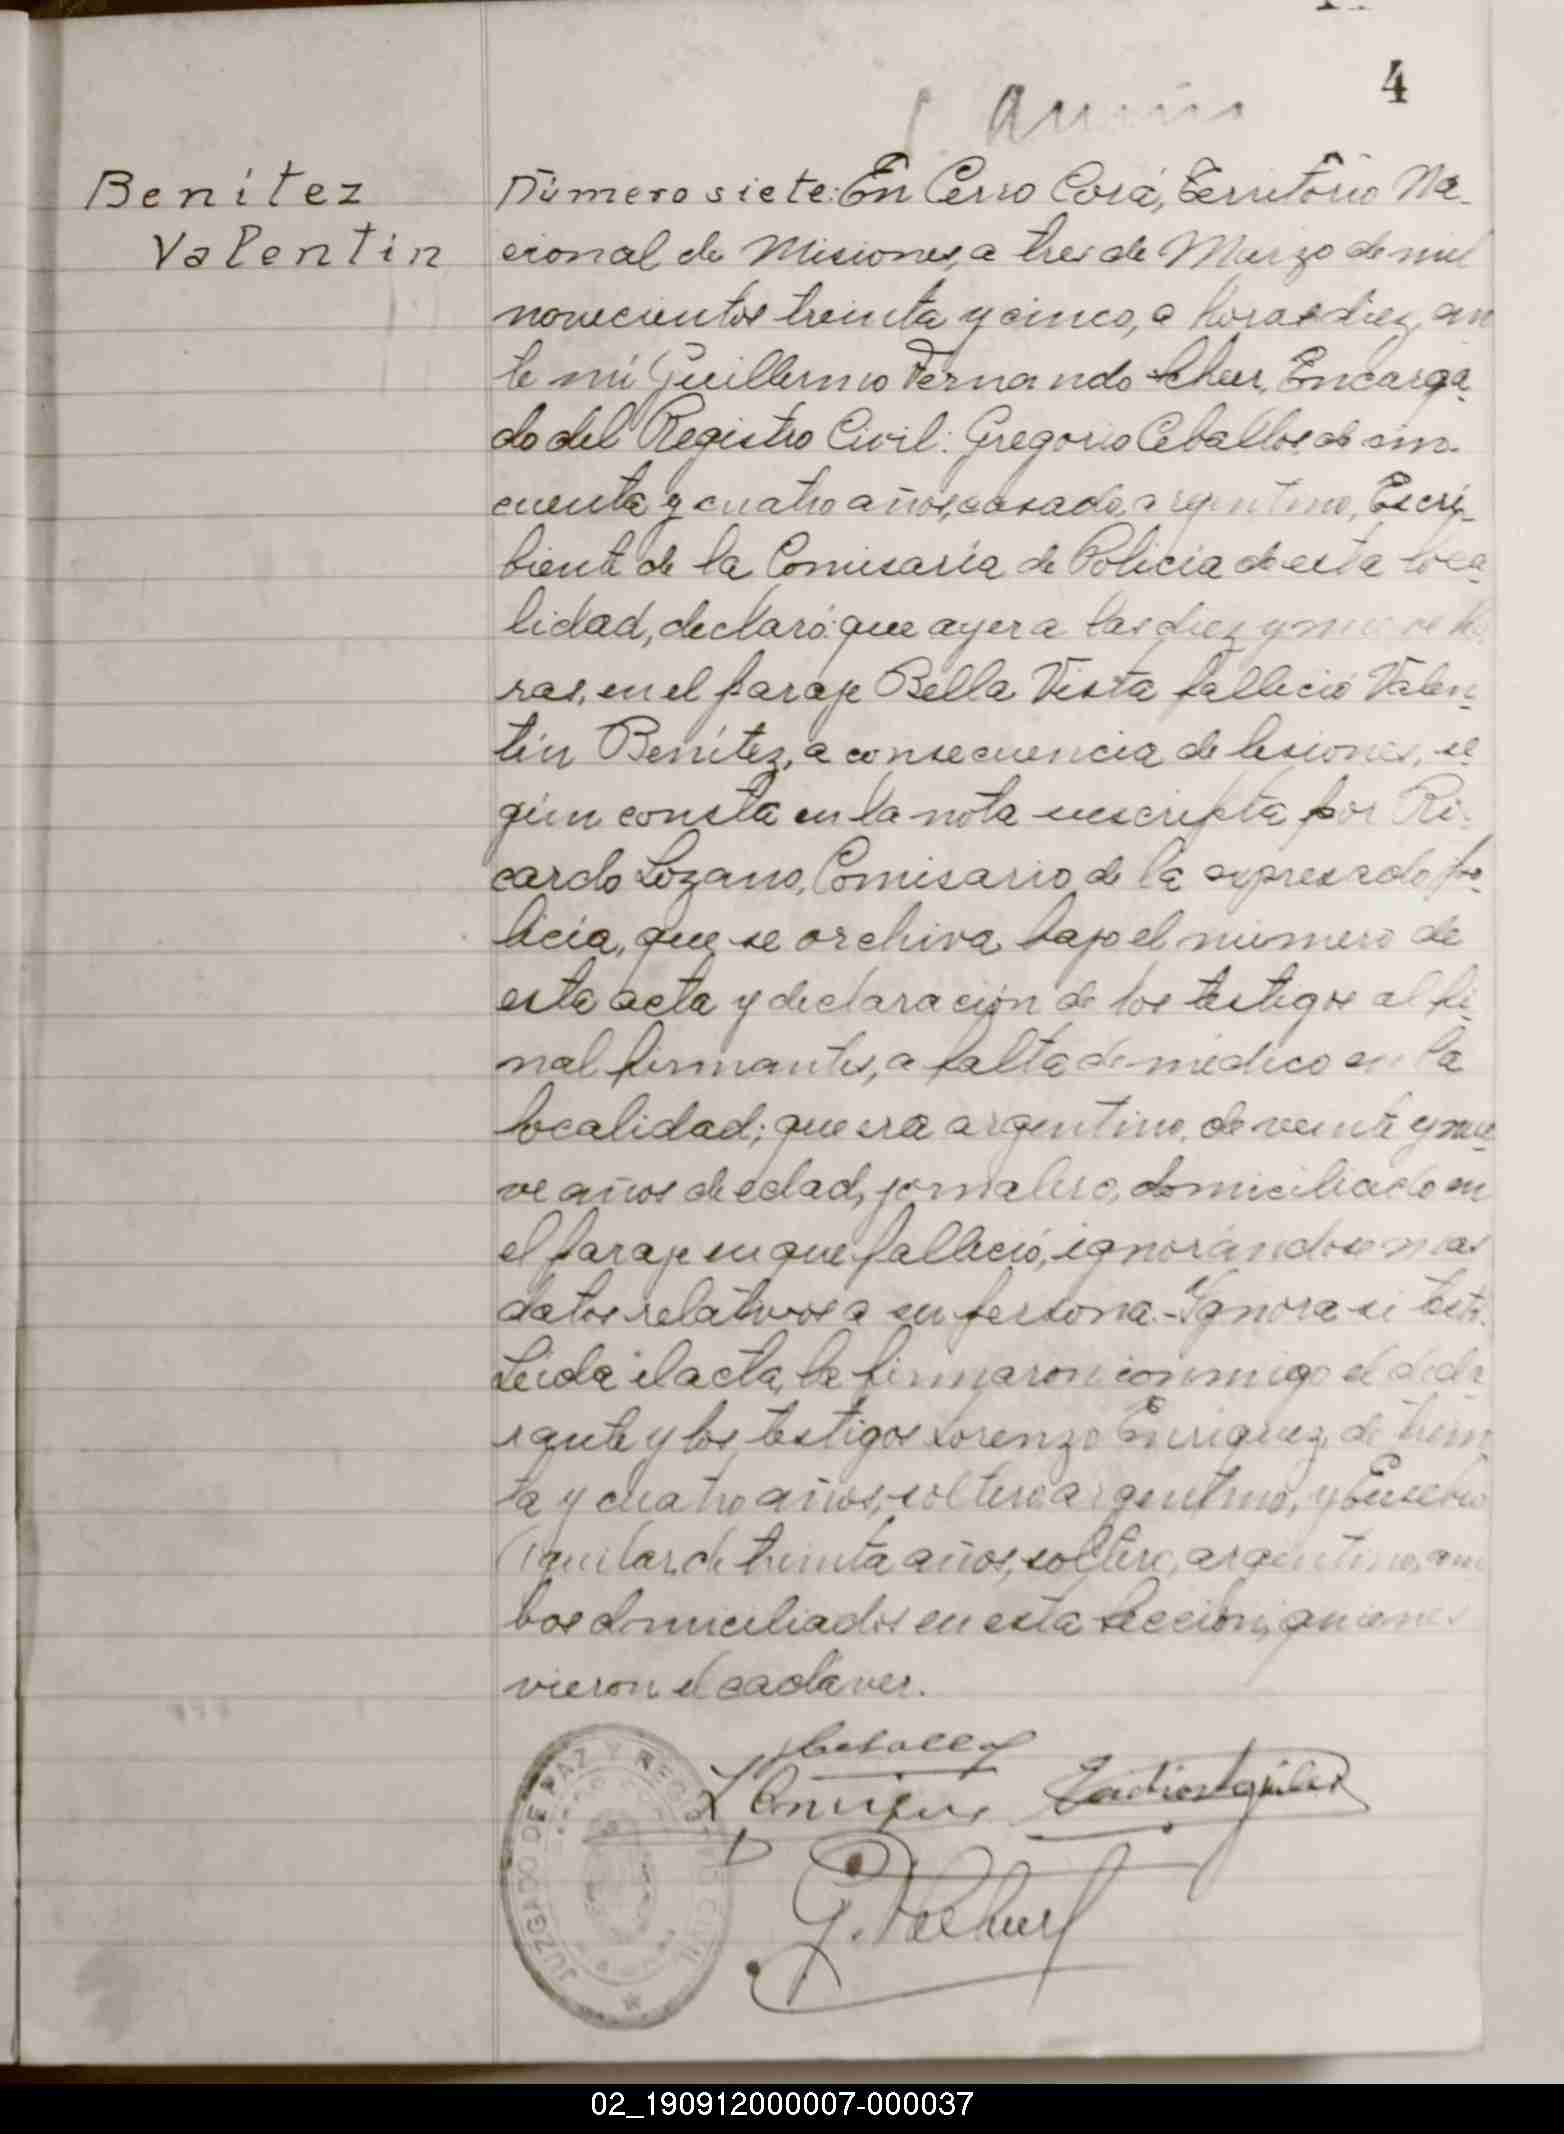 4
Benítez
Valentín
Número siete: En Cerro Corá, Territorio Na-
cional de Misiones, a tres de Marzo de mil
novecientos treinta y cinco, a horas diez, an
te mí Guillermo Fernando Scheer, Encarga-
do del Registro Civil: Gregorio Ceballos, de cin-
cuenta y cuatro años, casado, argentino, Escri-
biente de la Comisaría de Policía de esta loca-
lidad, declaró: que ayer a las diez y nueve ho
ras, en el paraje Bella Vista falleció Valen-
tín Benítez, a consecuencia de lesiones, se-
gún consta en la nota suscripta por Ri-
cardo Lozano, Comisario de la expresada po-
licía, que se archiva bajo el número de
esta acta y declaración de los testigos al fi-
nal firmantes, a falta de médico en la
localidad; que era argentino, de veinte y nue-
ve años de edad, jornalero, domiciliado en
el paraje en que falleció, ignorándose mas
datos relativos a su persona.- Ignora si testó.
Leída el acta, la firmaron conmigo el decla-
rante y los testigos Lorenzo Enriquez, de trein
ta y cuatro años, soltero, argentino, y Eusebio
Aguilar, de treinta años, soltero, argentino, am
bos domiciliados en esta sección, quienes
vieron el cadáver.
JUZGADO DE PAZ Y REGISTRO CIVIL
02_190912000007-000037